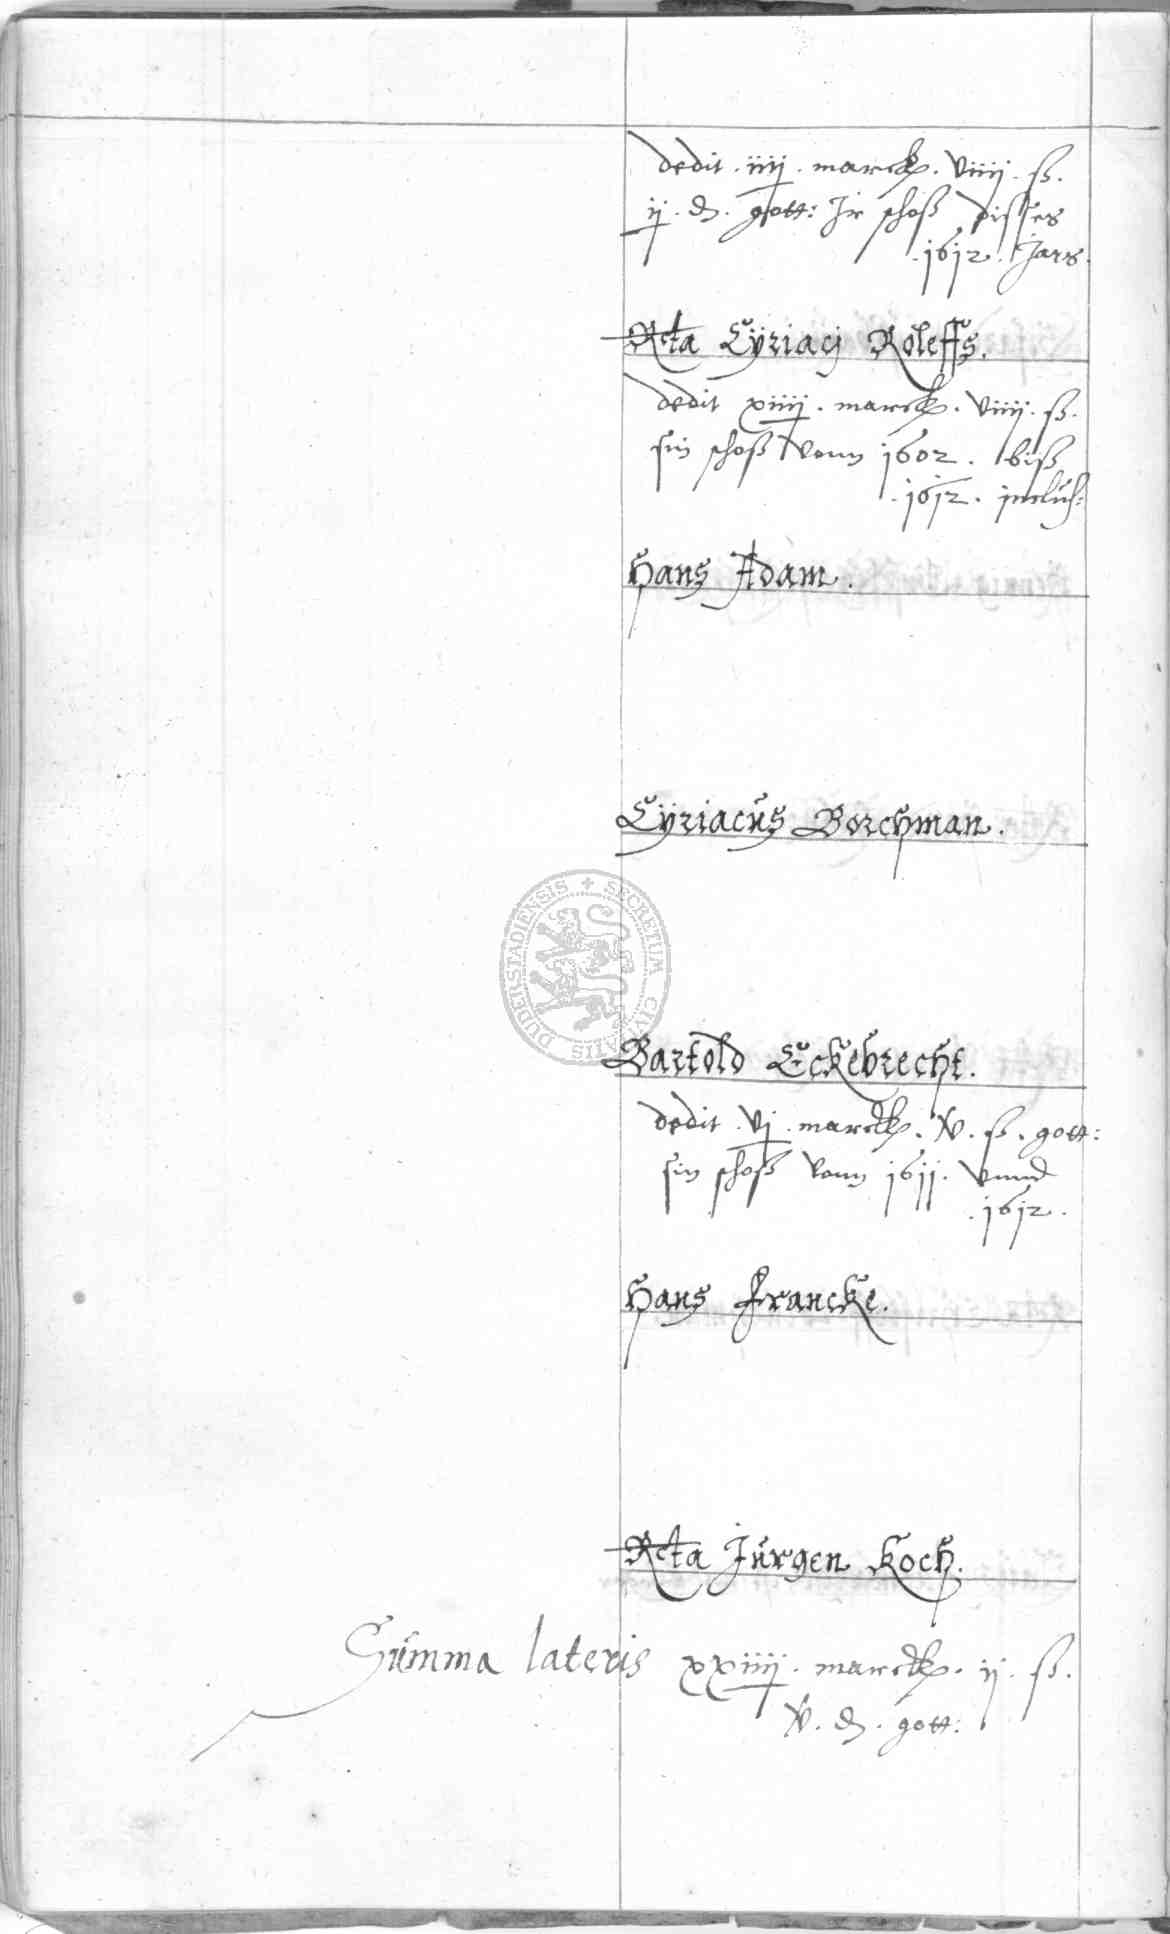 dedit . iiij . marck . viiij . ß .
ij . ₰ . gott: Ir schoß disses
. 1612 . Jars .
Rcta Cÿriacj Roleffs .
dedit xiiij . marck . viiij . ß .
sin schoß vonn 1602 . biß
. 1612 . inclus:
Hans Adam .
Cÿriacus Borchman .
SECRETUM CIVITATIS DUDERSTADIENSIS
Bartold Eckebrecht .
dedit . vj . marck . v . ß . gott:
sin schoß vonn 1611 . vnnd
. 1612 .
Hans Francke .
Rcta Jurgen Koch .
Summa lateris xxiiij . marck . ij . ß .
v . ₰ . gott: